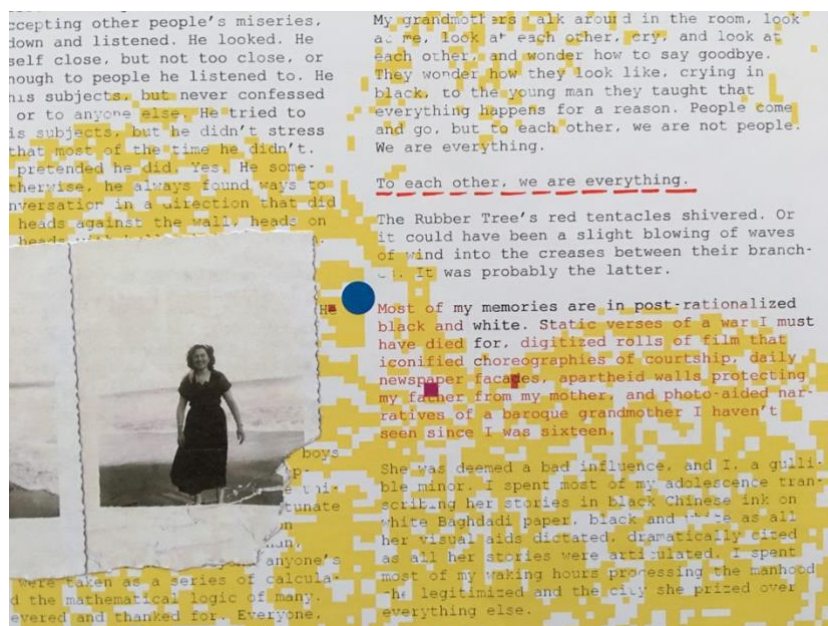 ccepting other people's miseries,
down and listened. He looked. He
self close, but not too close, or
nough to people he listened to. He
his subjects, but never confessed
or to anyone else. He tried to
is subjects, but he didn't stress
that most of the time he didn't.
pretended he did. Yes. He some-
therwise, he always found ways to
nversation in a direction that did
heads against the wall, heads on
heads
He
boys
p-
e uni-
tunate
n
many,
anyone's
were taken as a series of calcula-
d the mathematical logic of many.
evered and thanked for. Everyone,
My grandmothers walk around in the room, look
at me, look at each other, cry, and look at
each other, and wonder how to say goodbye.
They wonder how they look like, crying in
black, to the young man they taught that
everything happens for a reason. People come
and go, but to each other, we are not people.
We are everything.
To each other, we are everything.
The Rubber Tree's red tentacles shivered. Or
it could have been a slight blowing of waves
of wind into the creases between their branch-
es. It was probably the latter.
Most of my memories are in post-rationalized
black and white. Static verses of a war I must
have died for, digitized rolls of film that
iconified choreographies of courtship, daily
newspaper facades, apartheid walls protecting
my father from my mother, and photo-aided nar-
ratives of a baroque grandmother I haven't
seen since I was sixteen.
She was deemed a bad influence, and I, a gulli-
ble minor. I spent most of my adolescence tran-
scribing her stories in black Chinese ink on
white Baghdadi paper, black and white as all
her visual aids dictated, dramatically cited
as all her stories were articulated. I spent
most of my waking hours processing the manhood
she legitimized and the city she prized over
everything else.